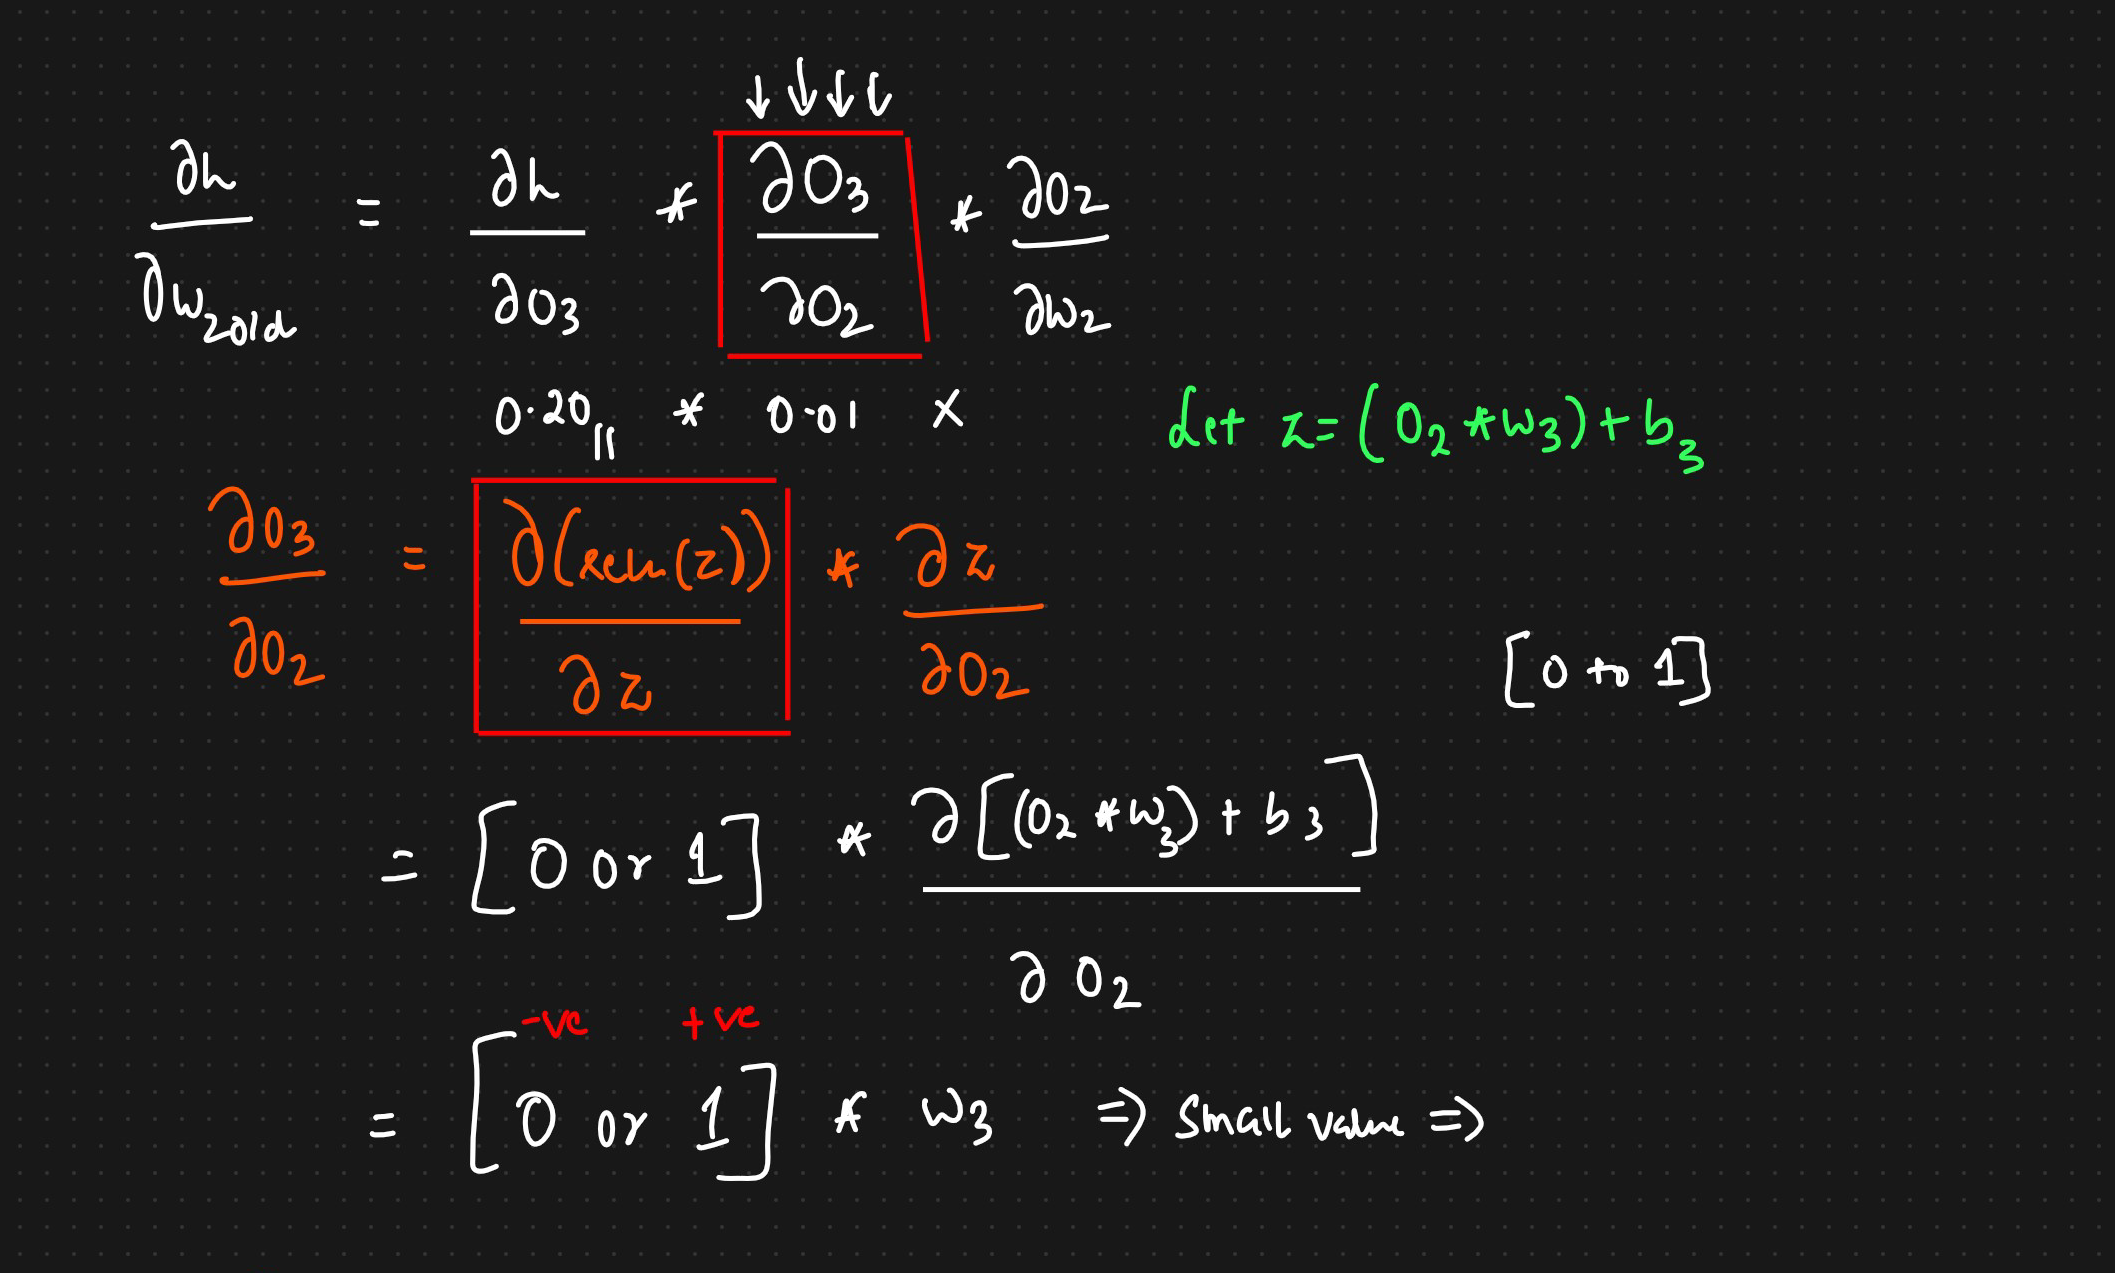 ∂h/∂w₂old = ∂h/∂O₃ * ∂O₃/∂O₂ * ∂O₂/∂w₂
0.20 * 0.01 x
Let z = (O₂ * w₃) + b₃
∂O₃/∂O₂ = ∂(relu(z))/∂z * ∂z/∂O₂
[0 to 1]
= [0 or 1] * ∂[(O₂ * w₃) + b₃]/∂O₂
-ve +ve
= [0 or 1] * w₃ => Small value =>